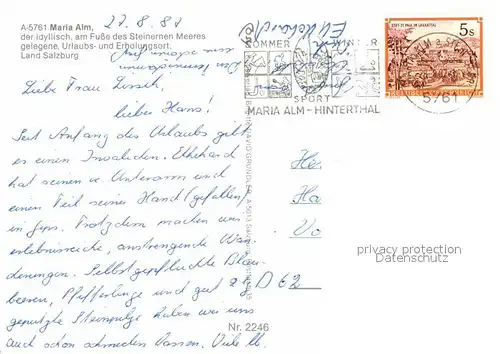 27.8.81
A-5761 Maria Alm,
der idyllisch, am Fuße des Steinernen Meeres
gelegene, Urlaubs- und Erholungsort.
Land Salzburg
Liebe Frau
lieber Hans!
Seit Anfang des Urlaubs gibt
es einen Invaliden. Ekkehard
hat seinen re. Unterarm und
einen Teil seiner Hand (gefallen)
in Gips. Trotzdem machen wir
erlebnisreiche, anstrengende Wan-
derungen. Selbstgepflückte Blau-
beeren, Pfifferlinge und gut
geputzte Steinpilze haben wir uns
auch schon schmecken lassen. Viele
Ekkehard
SOMMER WINTER
SPORT
MARIA ALM - HINTERTHAL
5s
5761
He
Ha
Vo
D 62
Nr. 2246
privacy protection
Datenschutz